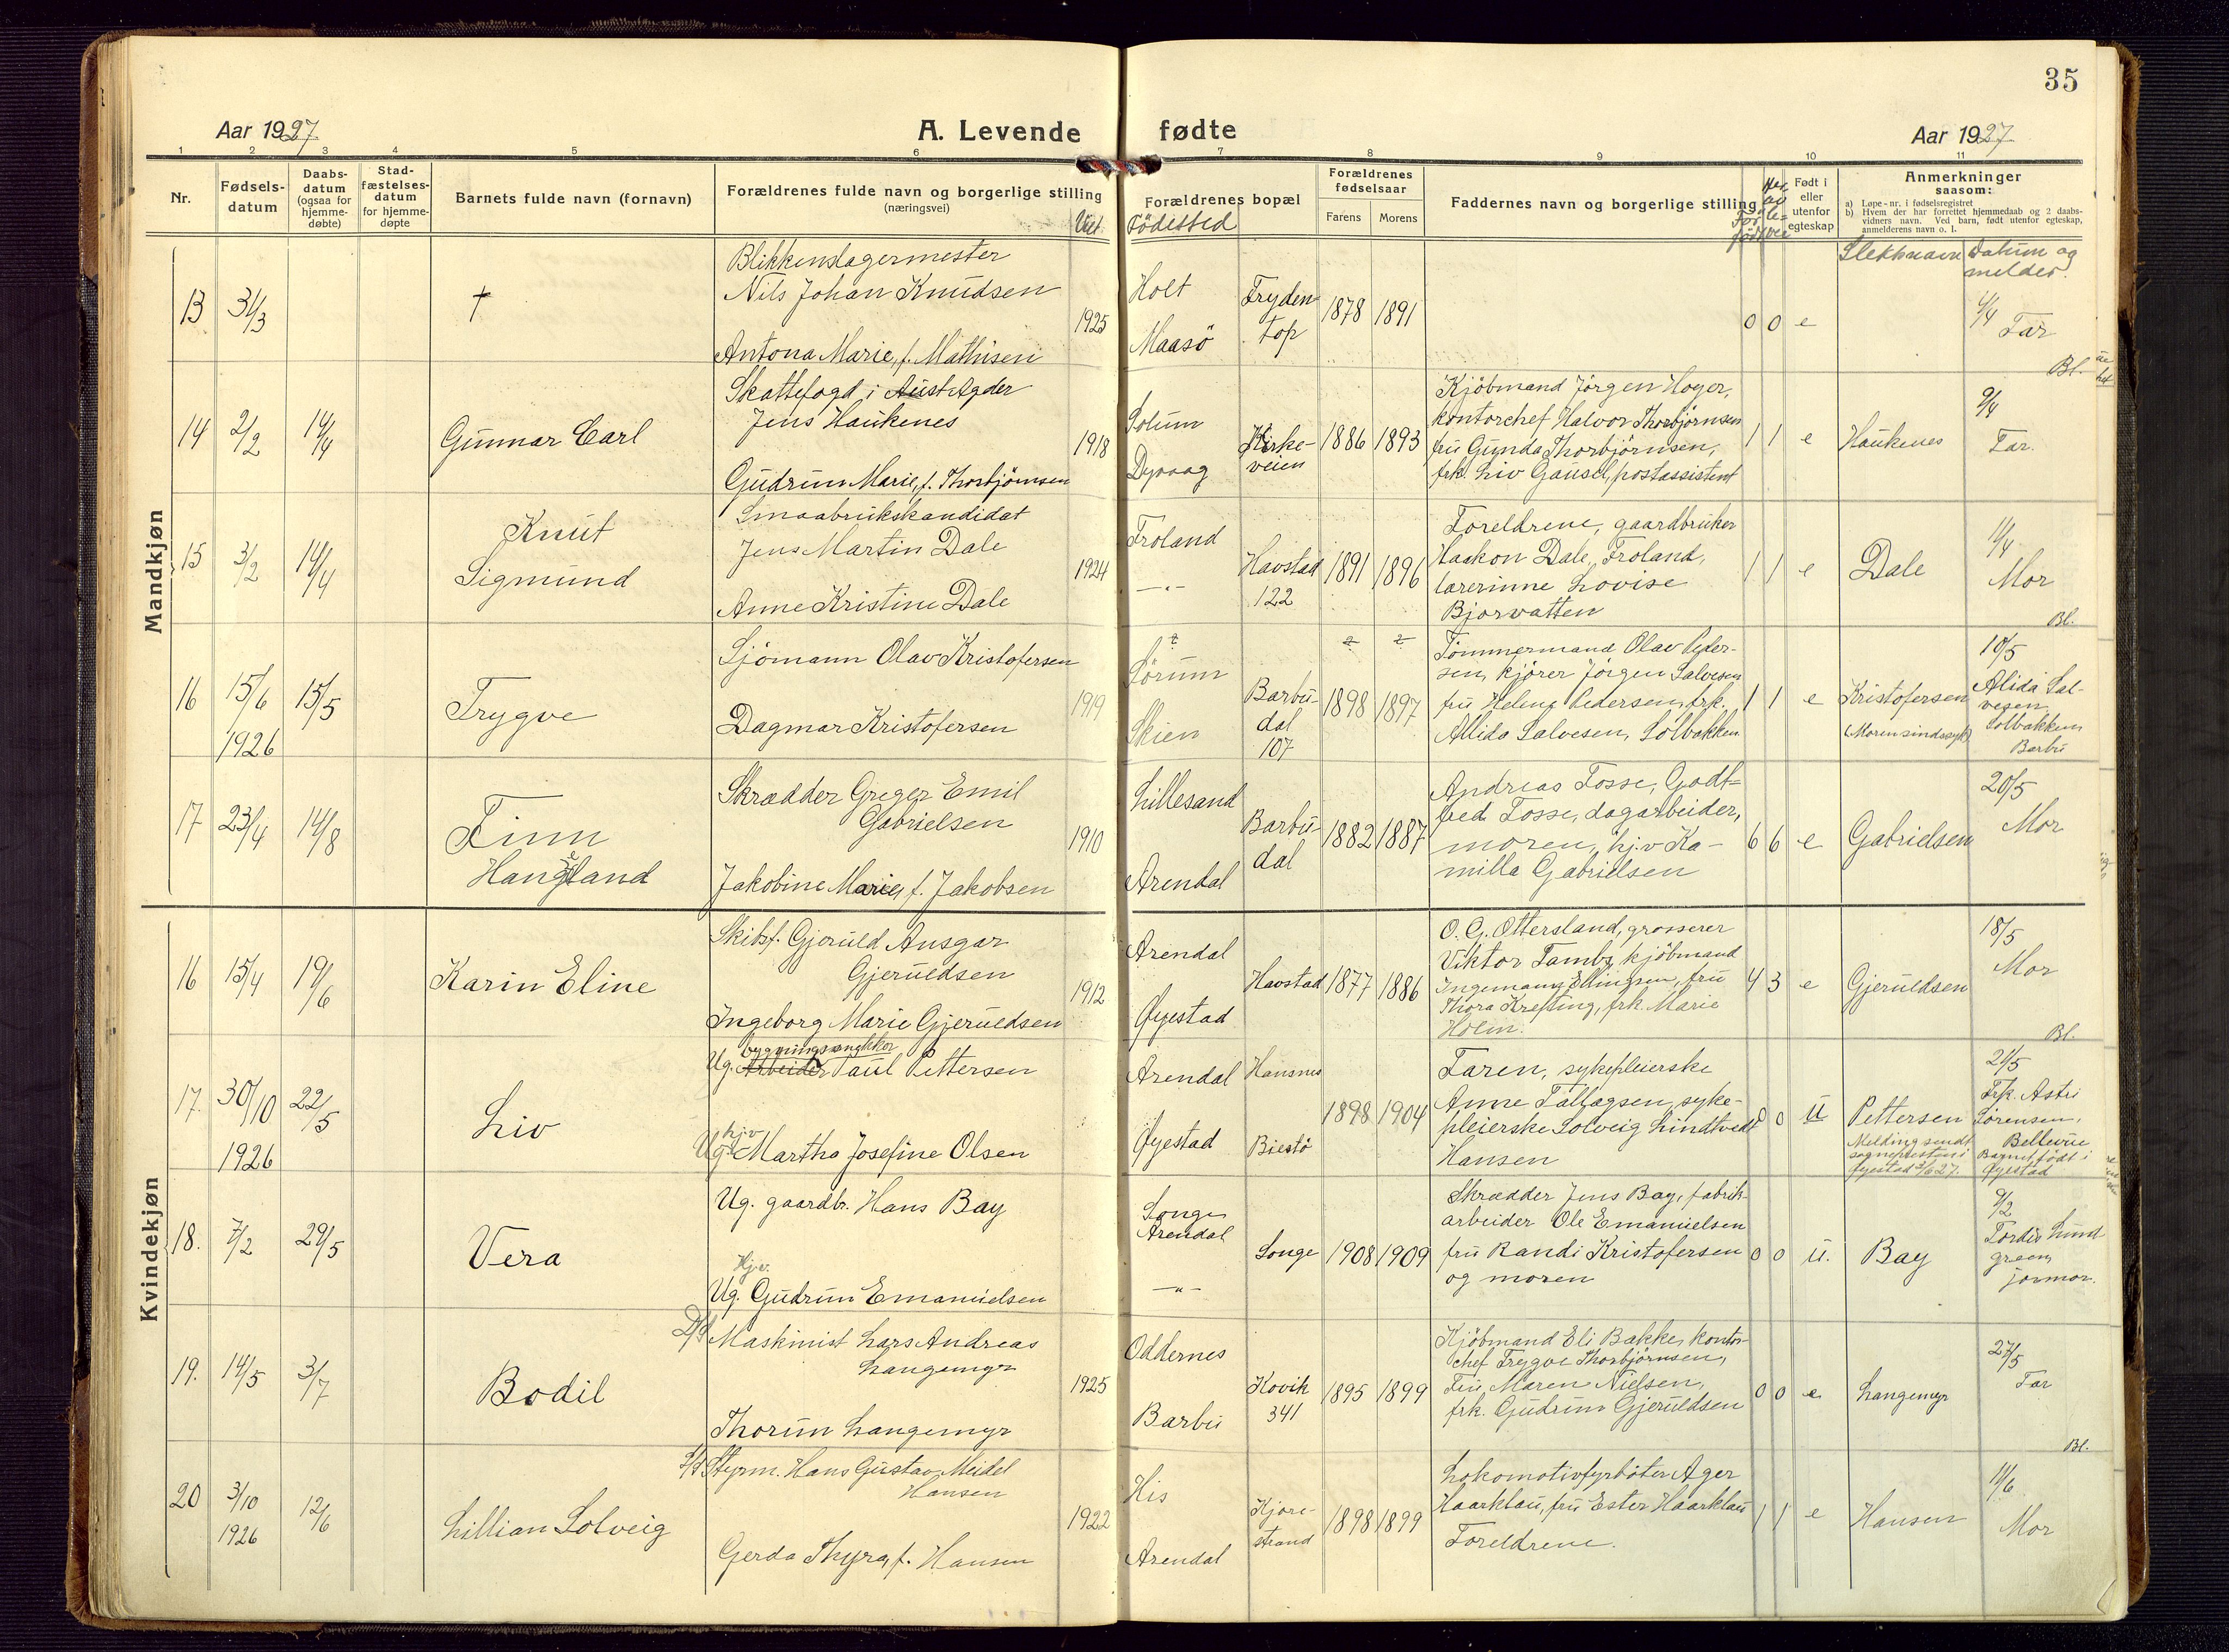 35
Aar 1927
A. Levende fødte
Aar 1927
1 2 3 4 5 6 7 8 9 10 11
Nr.
Fødsels-
datum
Daabs-
datum
(ogsaa for
hjemme-
døbte)
Stad-
fæstelses-
datum
for hjemme-
døpte
Barnets fulde navn (fornavn)
Forældrenes fulde navn og borgerlige stilling
(næringsvei)
Viet
Forældrenes bopæl
Födested
Forældrenes
fødselsaar
Farens
Morens
Faddernes navn og borgerlige stilling
Født i
eller
utenfor
egteskap
Anmerkninger
saasom:
a) Løpe-nr. i fødselsregistret
b) Hvem der har forrettet hjemmedaab og 2 daabs-
vidners navn. Ved barn, født utenfor egteskap,
anmelderens navn o. l.
Slektsnavn
Datum og
melder.
Mandkjøn
13
31/3
†
Blikkenslagermester
Nils Johan Knudsen
Antona Marie, f. Mathisen
1925
Holt
Maasö
Fryden
top
1878
1891
0 0 e
Far
Bl.
14
2/2
14/4
Gunnar Carl
Skattefogd i Aust Agder
Jens Haukenes
Gudrun Marie, f. Thorbjörnsen
1918
Solum
Dypvag
Kirke-
veien
1886
1893
Kjöbmand Jörgen Hoyer,
kontorchef Halvor Thorbjörnsen
fru Gunda Thorbjörnsen,
frk. Liv Gausel, postassistent
1 1 e
Haukenes
9/4
Far.
15
3/2
14/4
Knut
Sigmund
Smaabrukskandidat
Jens Martin Dale
Anne Kristine Dale
1924
Froland
—„—
Havstad
122
1891
1896
Foreldrene, gaardbruker
Haakon Dale, Froland,
lærerinne Lovise
Bjorvatten
1 1 e
Dale
11/4
Mor
Bl.
16
15/6
1926
15/5
Trygve
Sjömann Olav Kristofersen
Dagmar Kristofersen
1919
Sörum
Skien
Barbu-
dal
107
1898
1897
Tömmermand Olav Peder-
sen, kjörer Jörgen Salvesen
fru Helene Pedersen, frk.
Alida Salvesen, Solbakken
1 1 e
Kristofersen
(Moren sindssyk)
10/5
Alida Sal-
vesen
Solbakken
Barbu
17
23/4
14/8
Finn
Hangeland
Skrædder Greger Emil
Gabrielsen
Jakobine Marie, f. Jakobsen
1910
Lillesand
Arendal
Barbu-
dal
1882
1887
Andreas Fosse, Godt-
fred Fosse, dagarbeider,
moren, hj.v Ka-
milla Gabrielsen
6 6 e
Gabrielsen
20/5
Mor
Kvindekjøn
16
15/4
19/6
Karin Eline
Skibsf. Gjeruld Ansgar
Gjeruldsen
Ingeborg Marie Gjeruldsen
1912
Arendal
Øyestad
Havstad
1877
1886
O. G. Ottersland, grosserer
Viktor Fambz, kjöbmand
Ingemann Ellingsen, fru
Thora Krefting, frk. Marie
Holm.
4 3 e
Gjeruldsen
18/5
Mor
Bl.
17.
30/10
1926
22/5
Liv
bygningssnekker
Ug. Arbeider Paul Pettersen
hj.v
Ug. Martha Josefine Olsen
Arendal
Øyestad
Hansnes
Biestö
1898
1904
Faren, sykepleierske
Anne Tallagsen, syke-
pleierske Solveig Lindtvedt
Hansen
0 0 u
Pettersen
Melding sendt
sognepresten i
Øyestad 3/6 27.
21/5
Frk. Astri
Sörensen,
Bellevue
Barnet födt i
Øyestad
18.
7/2
29/5
Vera
Ug. gaardbr. Hans Bay
Hj.v.
Ug. Gudrun Emanuelsen
Songe
Arendal
—„—
Songe
1908
1909
Skrædder Jens Bay, fabrik-
arbeider Ole Emanuelsen
fru Randi Kristofersen
og moren
0 0 u.
Bay
9/2
Tordis Lund
green,
jormor.
19.
14/5
3/7
Bodil
D/S Maskinist Lars Andreas
Langemyr
Thorun Langemyr
1925
Oddernes
Barbu
Kovik
341
1895
1899
Kjöbmand Eli Bakke, kontor-
chef Trygve Thorbjörnsen,
Fru Maren Nielsen,
frk. Gudrun Gjeruldsen
0 0 e.
Langemyr
27/5
Far
Bl.
20
3/10
1926
12/6
Lillian Solveig
Styrm. Hans Gustav Meidel
Hansen
Gerda Thyra, f. Hansen
1922
His
Arendal
Kjore-
strand
1898
1899
Lokomotivfyrböter Ager
Haarklau, fru Ester Haarklau
Foreldrene.
1 1 e
Hansen
11/6
Mor